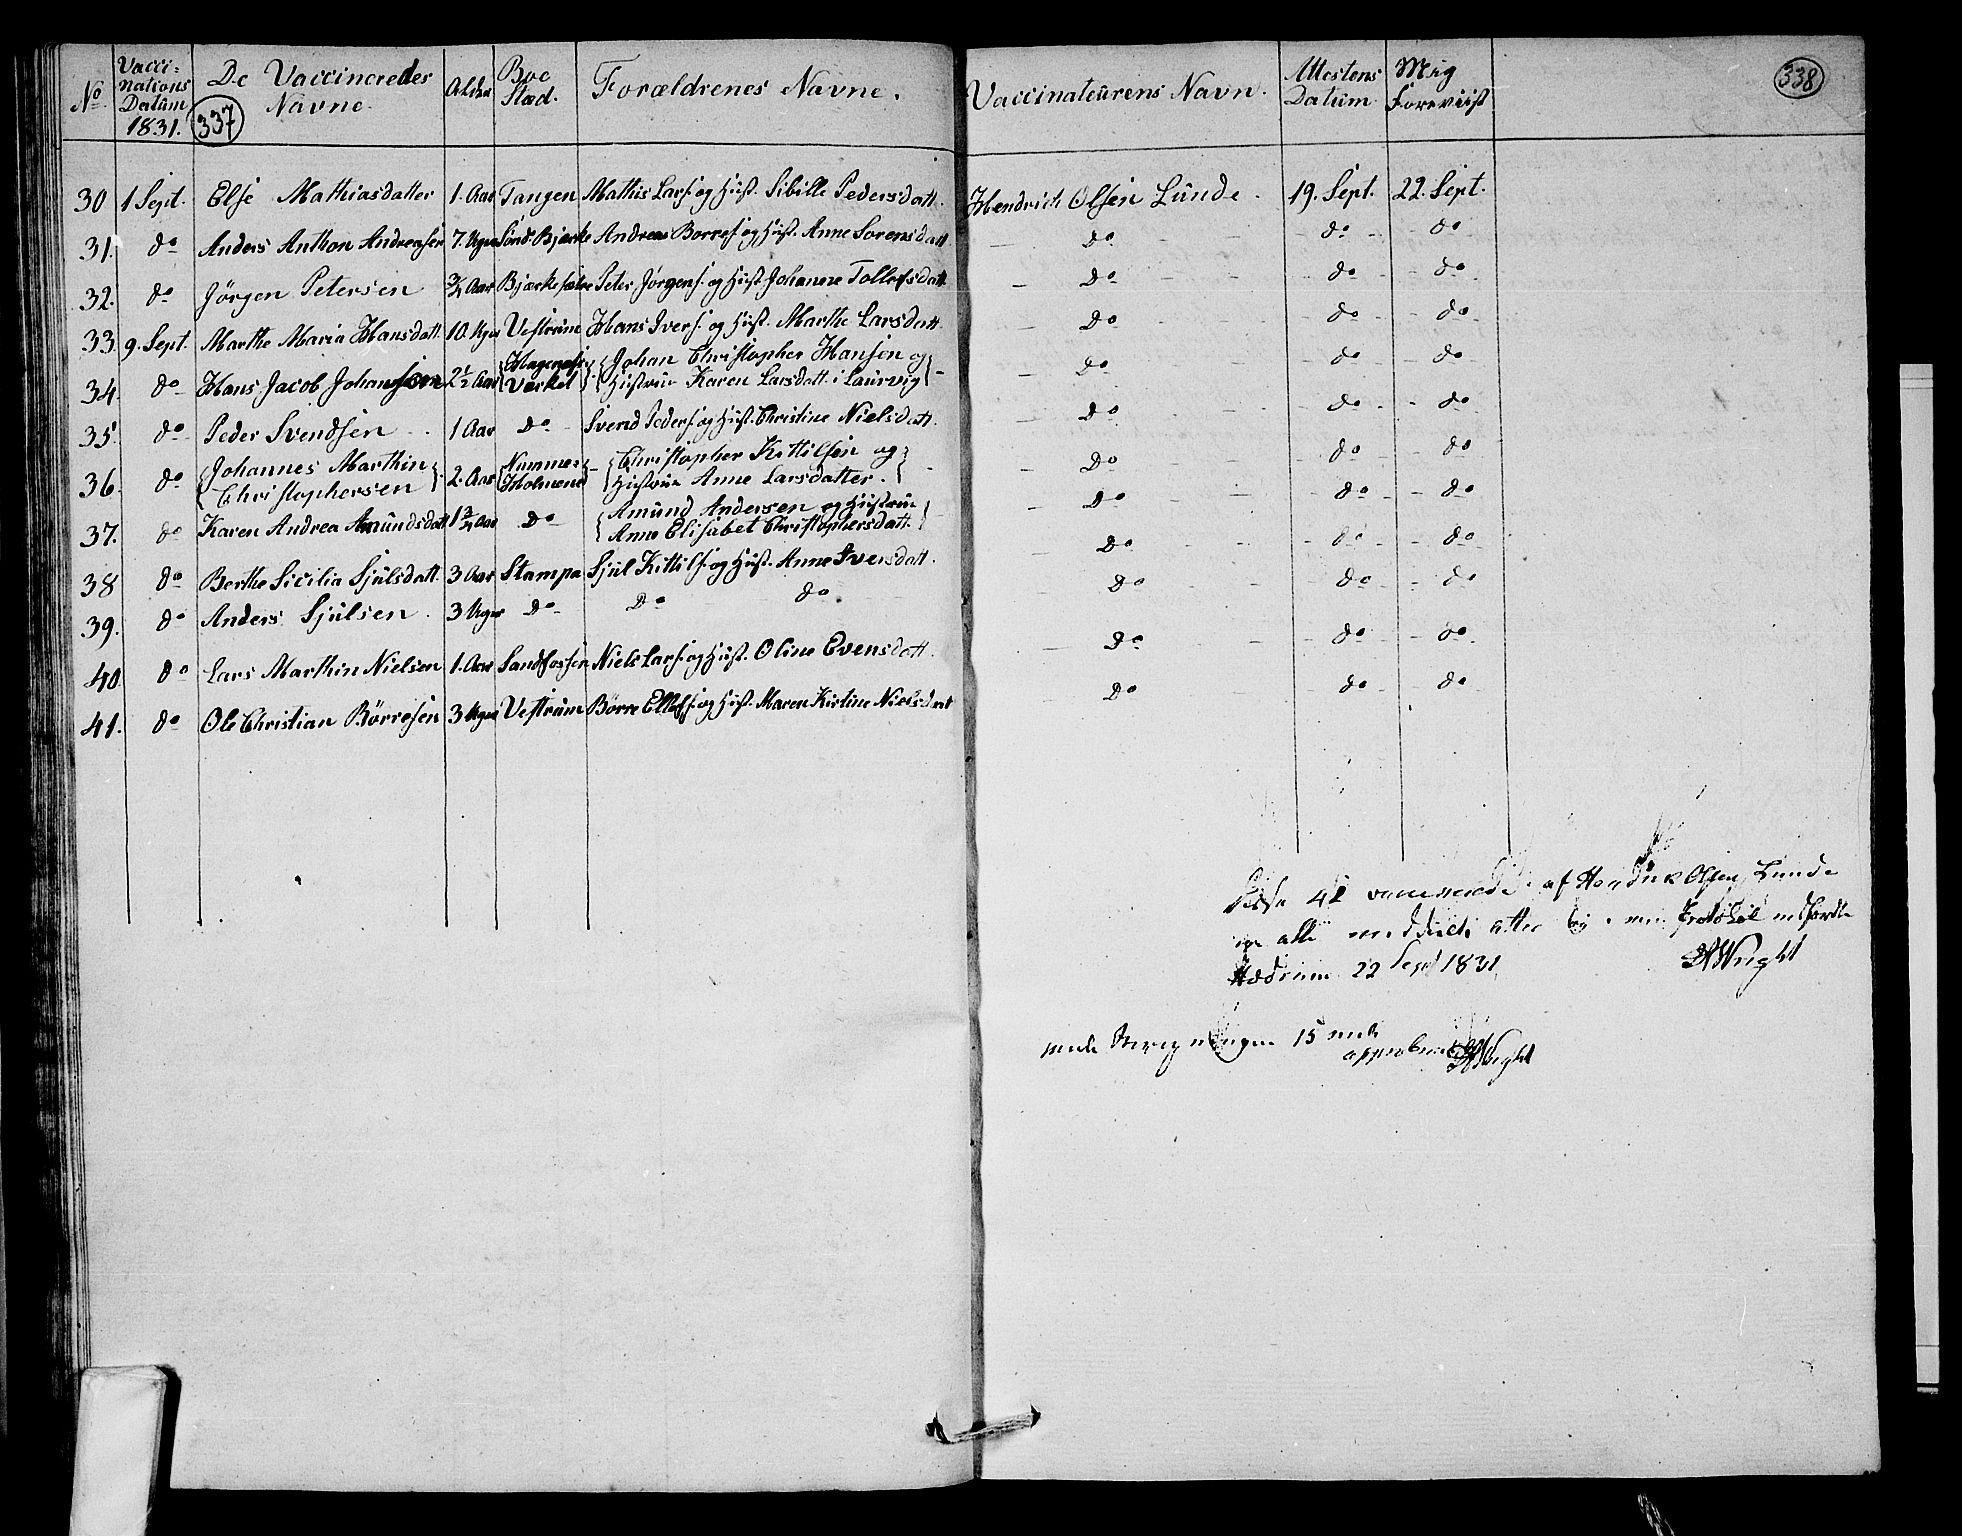 No Vaccinations Datum 1831. De Vaccineredes Navne. Alder Boe Stæd. Forældrenes Navne. Vaccinateurens Navn. Attestens Datum Mig Foreviist
337 338
30 1 Sept. Else Mathiasdatter 1. Aar Tangen Mathis Lars. og Hust. Sibille Pedersdatt. Hendrich Olsen Lunde. 19. Sept. 22. Sept.
31. do Anders Anthon Andreasen 7. Uger Sønd: Bjerke Andreas Borres. og Hust. Anne Sorensdatt. - Do - - - do - - do
32. do Jörgen Petersen 3/4 Aar Bjærkesætre Peter Jørgens. og Hust. Johanne Tollefsdatt. - Do - - - do - - do
33. 9. Sept. Marthe Maria Hansdatt. 10. Uger Vestrum Hans Ivers. og Hust. Marthe Larsdatt. - Do - - - do - - do
34. do Hans Jacob Johansen 2 1/2 Aar Verket Johan Christopher Hansen og
Hustrue Karen Larsdatt. i Laurvig - Do - - - do - - do
35. do Peder Svendsen 1 Aar Do Svend Peders. og Hust. Christine Nielsdatt. - Do - - - do - - do
36. do Johannes Marthin 2. Aar Nummer Christopher Kittilsen og
Christophersen Holmene Hustrue Anne Larsdatter. - Do - - - do - - do
37. do Karen Andrea Amundsdatt. 1 3/4 Aar Do Amund Andersen og Hustrue
Anne Elisabet Christophersdatt. - Do - - - do - - do
38 do Berthe Sicilia Sjulsdatt. 3 Aar Stampa Sjul Kittils. og Hust. Anne Iversdatt. - Do - - - do - - do
39. do Anders Sjulsen. 3 Uger Do Do do Do - do - - do
40. do Lars Marthin Nielsen 1. Aar Sandfossen Niels Lars. og Hust. Oline Evensdatt. - Do - - do - - do
41. do Ole Christian Börresen 3 Uger Vestrum Börre Ellefs. og Hust. Maren Kirstine Nielsdatt - Do - do - - do
Disse 41 vaccinerede af Hendrik Olsen Lunde
ere alle protokol
Hedrum 22 Sept 1831 Wright
15
Wright